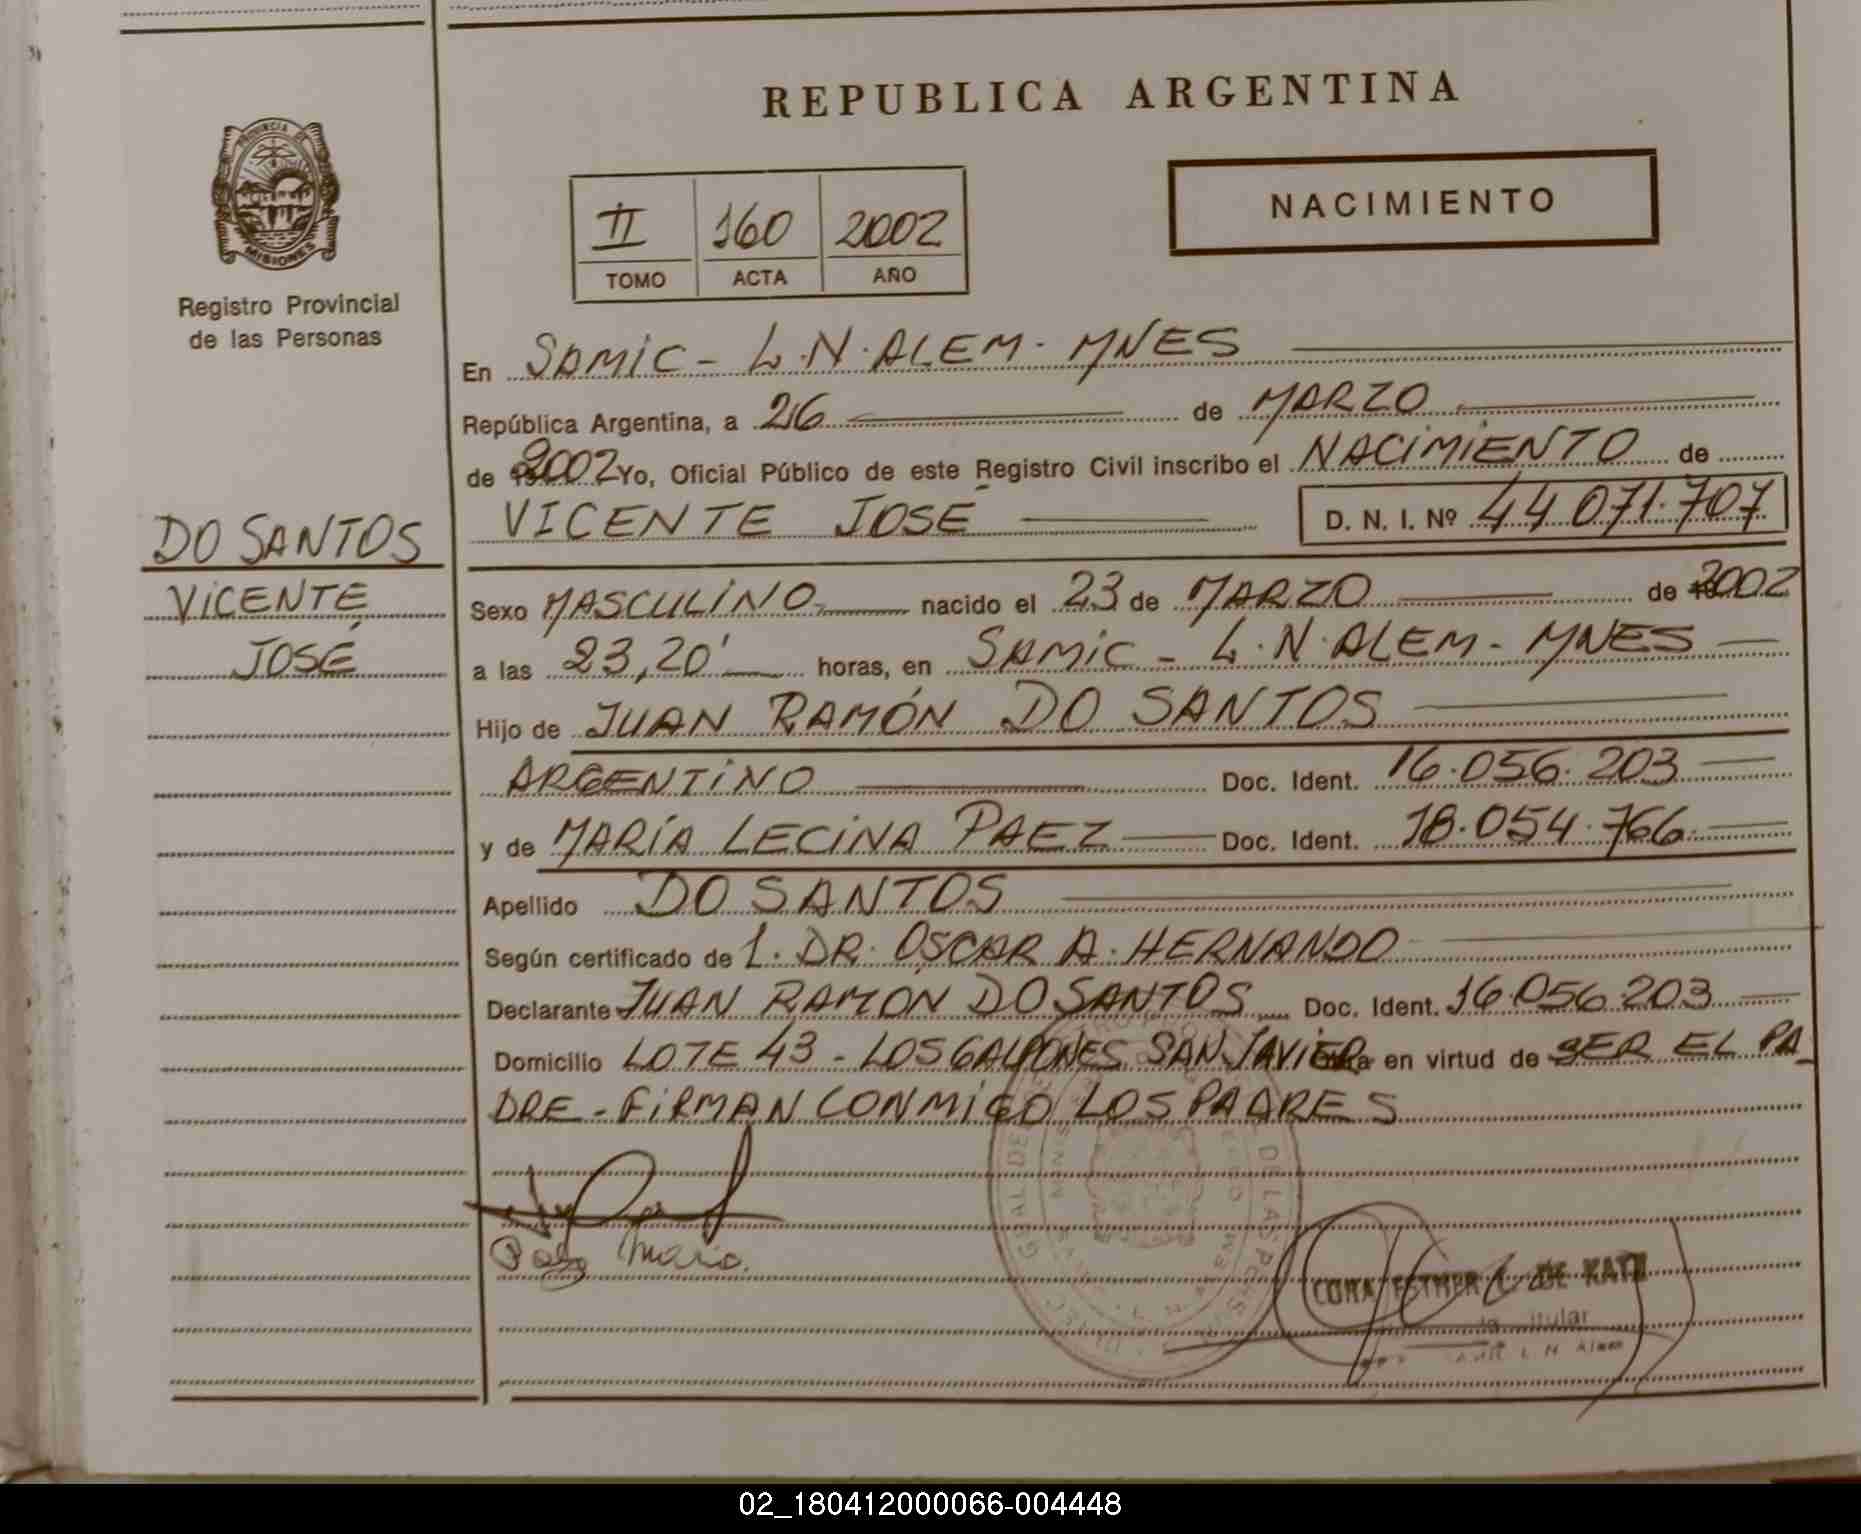 REPUBLICA ARGENTINA
PROVINCIA DE
MISIONES
Registro Provincial
de las Personas
II 160 2002
TOMO ACTA AÑO
NACIMIENTO
En SAMIC - L.N. ALEM - MNES
República Argentina, a 26 de MARZO
de 2002 Yo, Oficial Público de este Registro Civil inscribo el NACIMIENTO de
VICENTE JOSÉ D. N. I. Nº 44.071.707
DO SANTOS
VICENTE
JOSÉ
Sexo MASCULINO nacido el 23 de MARZO de 2002
a las 23,20' horas, en SAMIC - L.N. ALEM - MNES
Hijo de JUAN RAMÓN DO SANTOS
ARGENTINO Doc. Ident. 16.056.203
y de MARÍA LECINA PAEZ Doc. Ident. 18.054.766
Apellido DO SANTOS
Según certificado de 1. DR. OSCAR A. HERNANDO
Declarante JUAN RAMON DO SANTOS Doc. Ident. 16.056.203
Domicilio LOTE 43 - LOS GALPONES SAN JAVIER en virtud de SER EL PA
DRE - FIRMAN CONMIGO LOS PADRES
Paez Maria
ESTHER DE KATZ
02_180412000066-004448